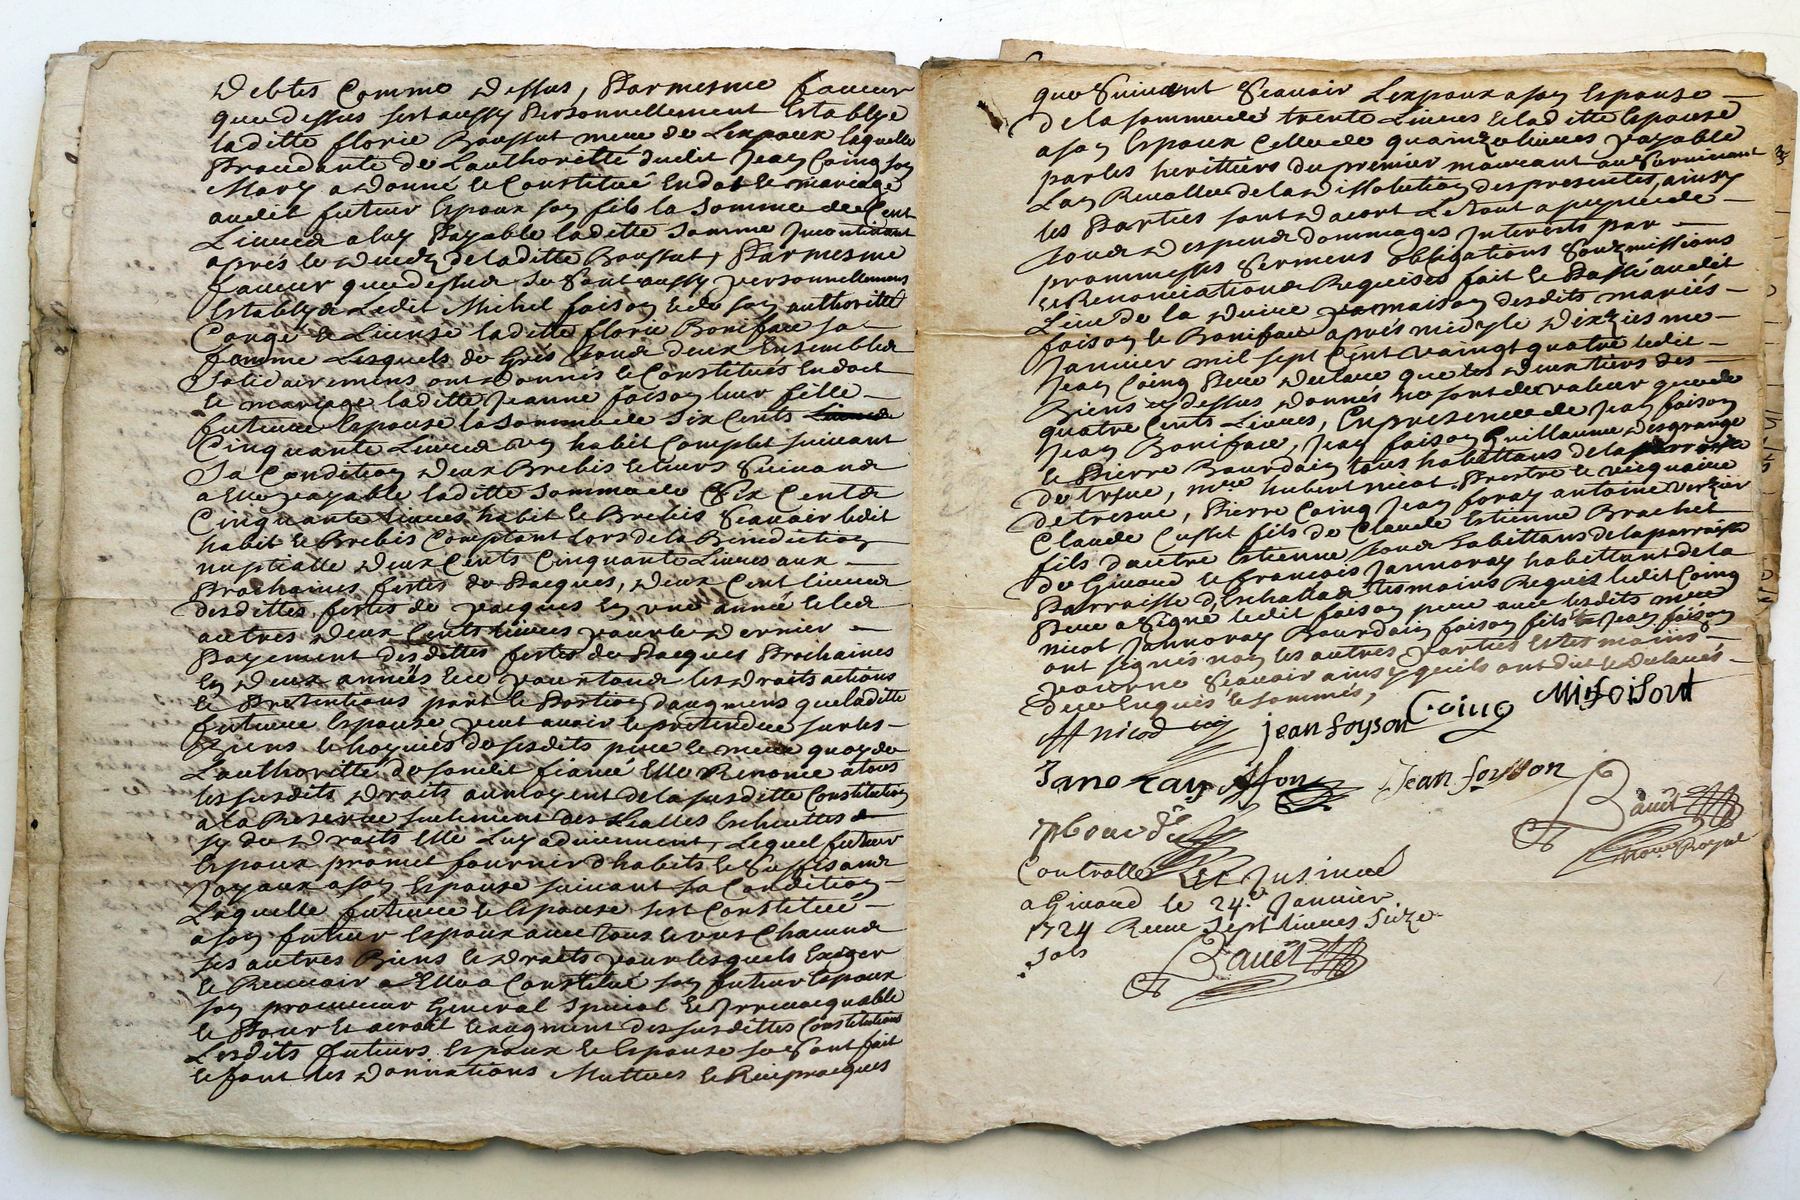 Debtes Comme Dessus, Par mesme faveur
que dessus sest aussy Personnellement Establye
laditte florie Boussut mere de Lexpoux laquelle
Procedante de Lauthoritté dudit Jean Coing son
Mary a Donné et Constitué en dot et mariage
audit futeur Espoux son fils la somme de Cent
Livres a luy Payable laditte somme Incontinant
aprés le Decez de laditte Boussut, Par mesme
faveur que dessus se sont aussy personnellement
Establys Ledit Michel faison et de son authoritté
Congé et License laditte florie Boniface sa
famme Lesquels de Gres tous deux Ensembles
solidairemens ont Donnés et Constitués en dot
et mariage laditte Jeanne faison leur fille
future Espouse la somme de six Cents
Cinquante Livres un habit Complet suivant
sa Condition deux Brebis et leurs suivans
a Elle payable laditte somme de Six Cents
Cinquante Livres habit et Brebis Scavoir ledit
habit et Brebis Comptant Lors de la Benediction
nuptialle deux Cents Cinquante Livres aux
Prochaines festes de Pacques, deux Cent livres
desdittes festes de pacques en une année et les
autres deux Cents livres pour le Dernier
Payement desdittes festes de Pacques Prochaines
en deux années Et ce pour tous les Droits actions
et Pretentions part et Portion daugmens que laditte
future Espouse peut avoir et pretendre sur les
Biens et hoyries de sesdits pere et mere quoy de
Lauthoritté de sondit fiancé Elle Renonce a tous
les susdits Droits au moyent de la susditte Constitution
a la Reserve seulement des Loialles Escheuttes
sy de Droits Elle Luy adviennent, Lequel futeur
Espoux promet fournir d'habits et Suffisans
Joyaux a son Espouse suivant sa Condition
Laquelle future Espouse sest Constitué
a son futeur Espoux avec tous et uns Chacuns
ses autres Biens et Droits pour lesquels Exiger
et Recevoir a Elle a Constitué son futeur Espoux
son procureur General Special et Irrevocquable
et Pour le acroit et augment des susdittes Constitutions
Lesdits futeurs Espoux et Espouse se sont fait
et font des Donnations Mutues et Reciprocques
que Suivent Scavoir Lexpoux a son Espouse
de la somme de trente Livres et laditte Espouse
a son Espoux Celle de quainze livres payable
par les herittiers du premier mourant au Survivant
Lan Revollu de la Dissolution des presentes, ainsy
les Parties sont Dacort Le tout a peyne de
tous Despens dommages Interests par
prommesses Sermens obligations Soubmissions
et Renonciations Requises fait et Passé audit
Lieu de la Duire par maison desdits mariés
faison et Boniface aprés midy le Dixzies me
Janvier mil sept Cent vaingt quatre ledit
Jean Coing Pere Declare que les deux tiers des
Biens cy dessus donnés ne sont de valeur que de
quatre Cents Livres, En presence de Jean faison
Jean Boniface, Jean faison Guillaume Desgrange
et Pierre Bourdain tous habittans de la parroisse
de tresve, mre hubert nicot Prestre et vicquaire
de tresve, Pierre Coing Jean foray antoine verzier
Claude Cusset fils de Claude Estienne Brachet
fils dautre Estienne tous habittans de la parroisse
de Givord et françois Jannoray habittant de la
Parroisse d'Eschallas tesmoins Requis ledit Coing
Pere a signé ledit faison pere avec lesdits mre
nicot Jannoray Bourdain faison fils et Jean faison
ont signés non les autres parties Et tesmoins
pour ne Scavoir ainsy quils ont dit et Declarés
De ce Enquis et sommés,
H nicod jean foyson Coing M foison
Janoray Jean foisson
P bourd
Bauet
Controllé Et Insinué
Nore Royal
a Givord le 24e Janvier
1724 Receu Sept livres Sieze
sols
Bauet